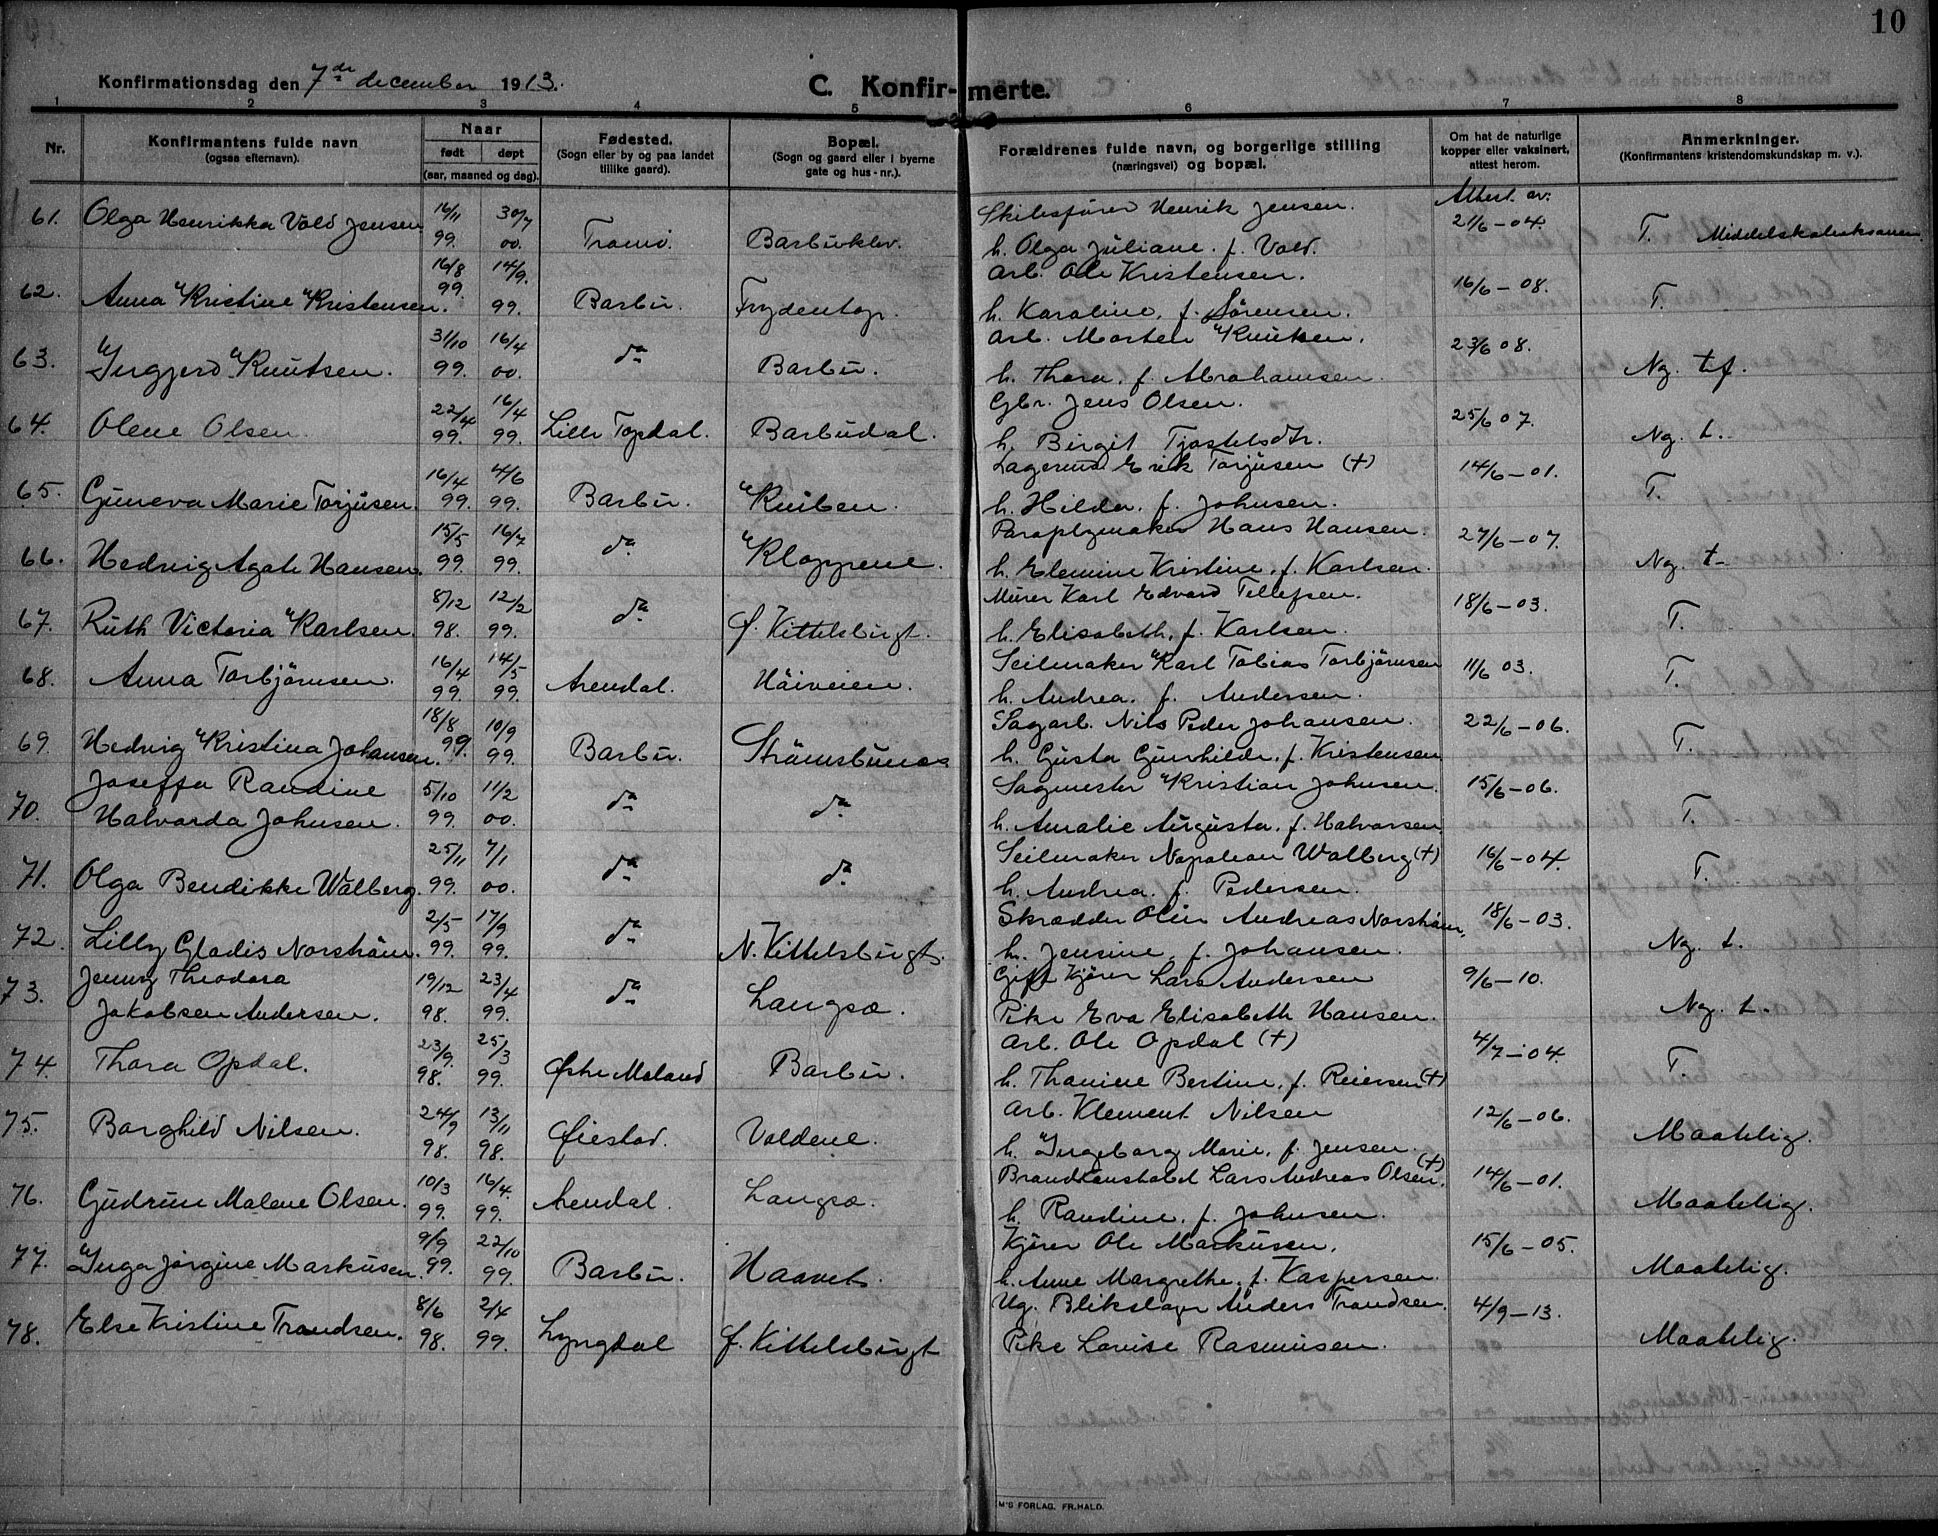 10
Konfirmationsdag den 7de december 1913.
C. Konfirmerte.
1 2 3 4 5 6 7 8
Nr.
Konfirmantens fulde navn
(ogsaa efternavn).
Naar
født døpt
(aar, maaned og dag).
Fødested.
(Sogn eller by og paa landet
tillike gaard).
Bopæl.
(Sogn og gaard eller i byerne
gate og hus-nr.).
Forældrenes fulde navn, og borgerlige stilling
(næringsvei) og bopæl.
Om hat de naturlige
kopper eller vaksinert,
attest herom.
Anmerkninger.
(Konfirmantens kristendomskundskap m. v.).
Attest av.
61. Olga Henrikka Vold Jensen 16/11 30/7 Skibsfører Henrik Jensen. 21/6-04.
99. 00. Tromö. Barbuklev. h. Olga Juliane. f. Vold. T. Middelskoleeksamen
62. Anna Kristine Kristensen. 16/8 14/9. Arb. Ole Kristensen. 16/6-08.
99. 99. Barbu. Frydentop. h. Karoline, f. Sörensen. T.
63. Ingjerd Knutsen. 31/10 16/4 do Arb. Morten Knutsen. 23/6 08.
99. 00. Barbu. h. Thora, f. Abrahamsen. Ng. tf.
64. Olene Olsen. 22/4 16/4 Gbr. Jens Olsen. 25/6 07.
99. 99. Lille Topdal. Barbudal. h. Birgit Tjostelsdtr. Ng. t.
65. Guneva Marie Torjusen. 16/4 4/6 Erik Torjusen (+) 14/6-01.
99. 99. Barbu. Kniben. h. Hilda, f. Johnsen. T.
66. Hedvig Agate Hansen. 15/5 16/7 do Paraplymaker Hans Hansen. 27/6-07.
99. 99. Kloppene. h. Elemine Kristine, f. Karlsen. Ng. t-
67. Ruth Victoria Karlsen. 8/12 12/2 do Murer Karl Edvard Tellefsen. 18/6-03.
98. 99. f. Kittelsbugt. h. Elisabeth, f. Karlsen. T.
68. Anna Torbjörnsen. 16/4 14/5 Seilmaker Karl Tobias Torbjörnsen 11/6 03.
99. 99. Arendal. Häiveien. h. Andrea, f. Andersen. T.
69. Hedvig Kristina Johansen. 18/8 10/9 Sagarb. Nils Peder Johansen. 22/6-06.
99. 99. Barbu. Strömsbunes h. Gusta Gunhilde, f. Kristensen T.
70. Joseffa Randine 5/10 11/2 do do Sagmester Kristian Johnsen. 15/6-06.
Halvarda Johnsen. 99. 00. h. Amalie Augusta, f. Halvorsen. T.
71. Olga Bendikke Walberg. 25/11 7/1 do do Seilmaker Napolean Walberg (+) 16/6-04.
99. 00. h. Andrea, f. Pedersen. T.
72. Lilly Gladis Norström. 2/5 17/9 do Skrædder Olin Andreas Norström. 18/6-03.
99. 99. N. Kittelsbugt. h. Jensine, f. Johansen. Ng. t.
73. Jenny Theodora 19/12 23/4 do Gift Kjörer Lars Andersen 9/6-10.
Jakobsen Andersen. 98. 99. Langsæ. Pike Eva Elisabeth Hansen. Ng. t.
74. Thora Opdal. 23/9. 25/3 Arb. Ole Opdal (+) 4/7-04.
98. 99. Østre Moland Barbu. h. Thamine Bertine, f. Reiersen (+) T.
75. Borghild Nilsen. 24/9 13/11 Arb. Klement Nilsen 12/6-06.
98. 98. Øiestad. Voldene. h. Ingeborg Marie, f. Jensen. Maatelig.
76. Gudrun Malene Olsen. 10/3 16/4. Brandkonstabel Lars Andreas Olsen. (+) 14/6-01.
99. 99. Arendal. Langsæ. h. Randine, f. Johnsen. Maatelig.
77. Inga Jørgine Markusen. 9/9 22/10 Kjörer Ole Markussen. 15/6-05.
99. 99. Barbu. Haavet. h. Anne Margrethe, f. Kaspersen. Maatelig.
78. Else Kristine Trondsen. 8/6 2/4 Ug. Blikslager Anders Trondsen. 4/9-13.
98. 99. Lyngdal f. Kittelsbugt Pike Lovise Rasmusen. Maatelig.
M'S FORLAG. FR. HALD.